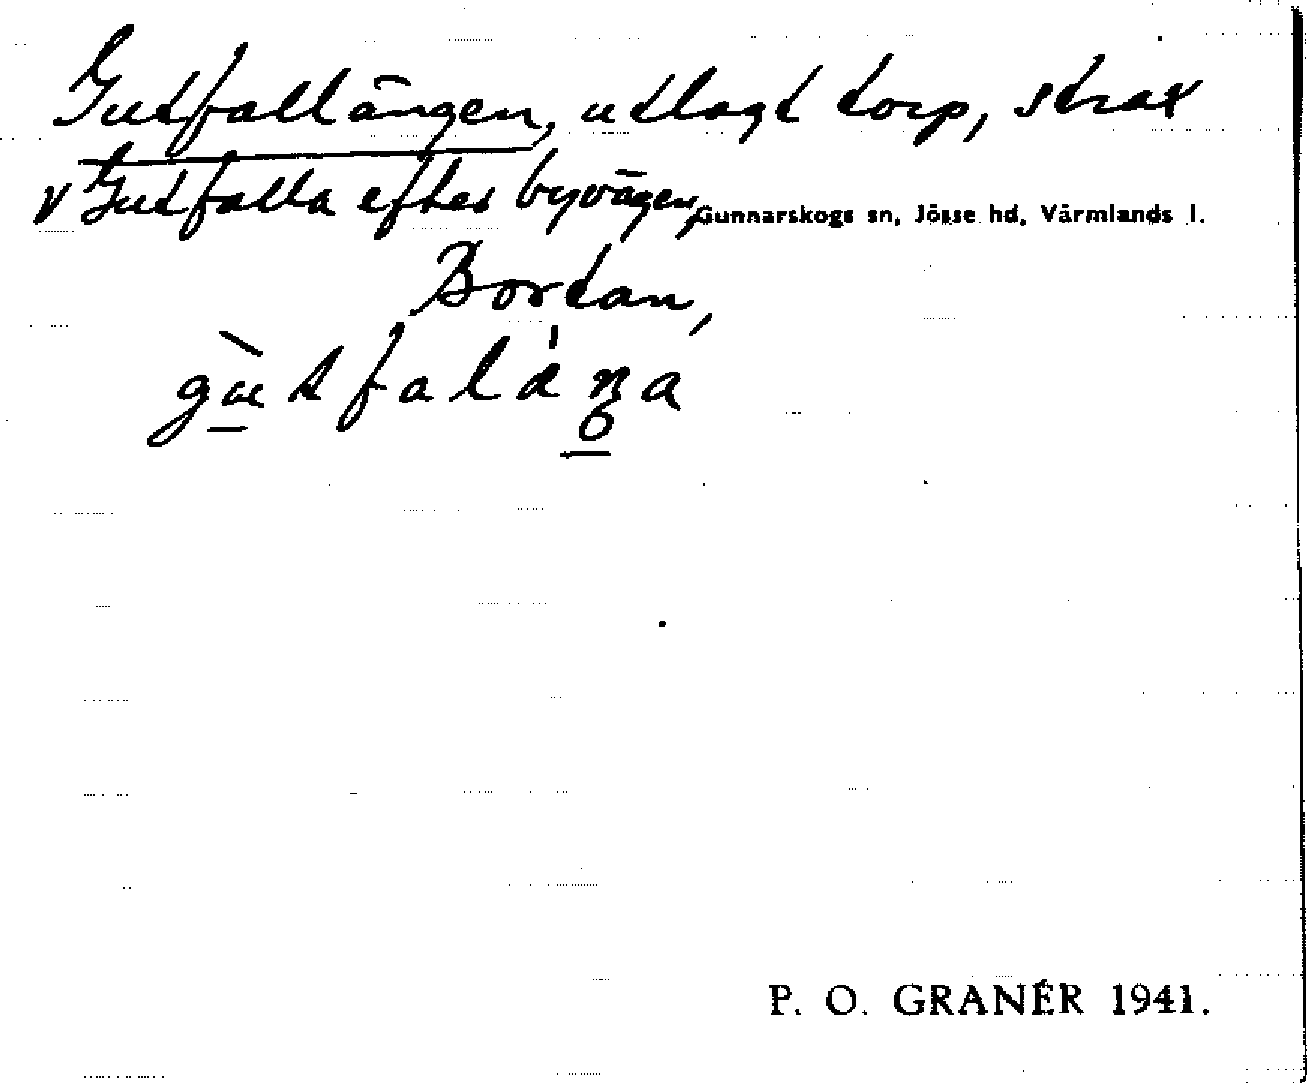 Gutfallängen, utlagt torp, strax
v Gutfalla efter byvägen,
Gunnarskogs sn, Jösse hd, Värmlands l.
Bortan,
P. O. GRANÉR 1941.